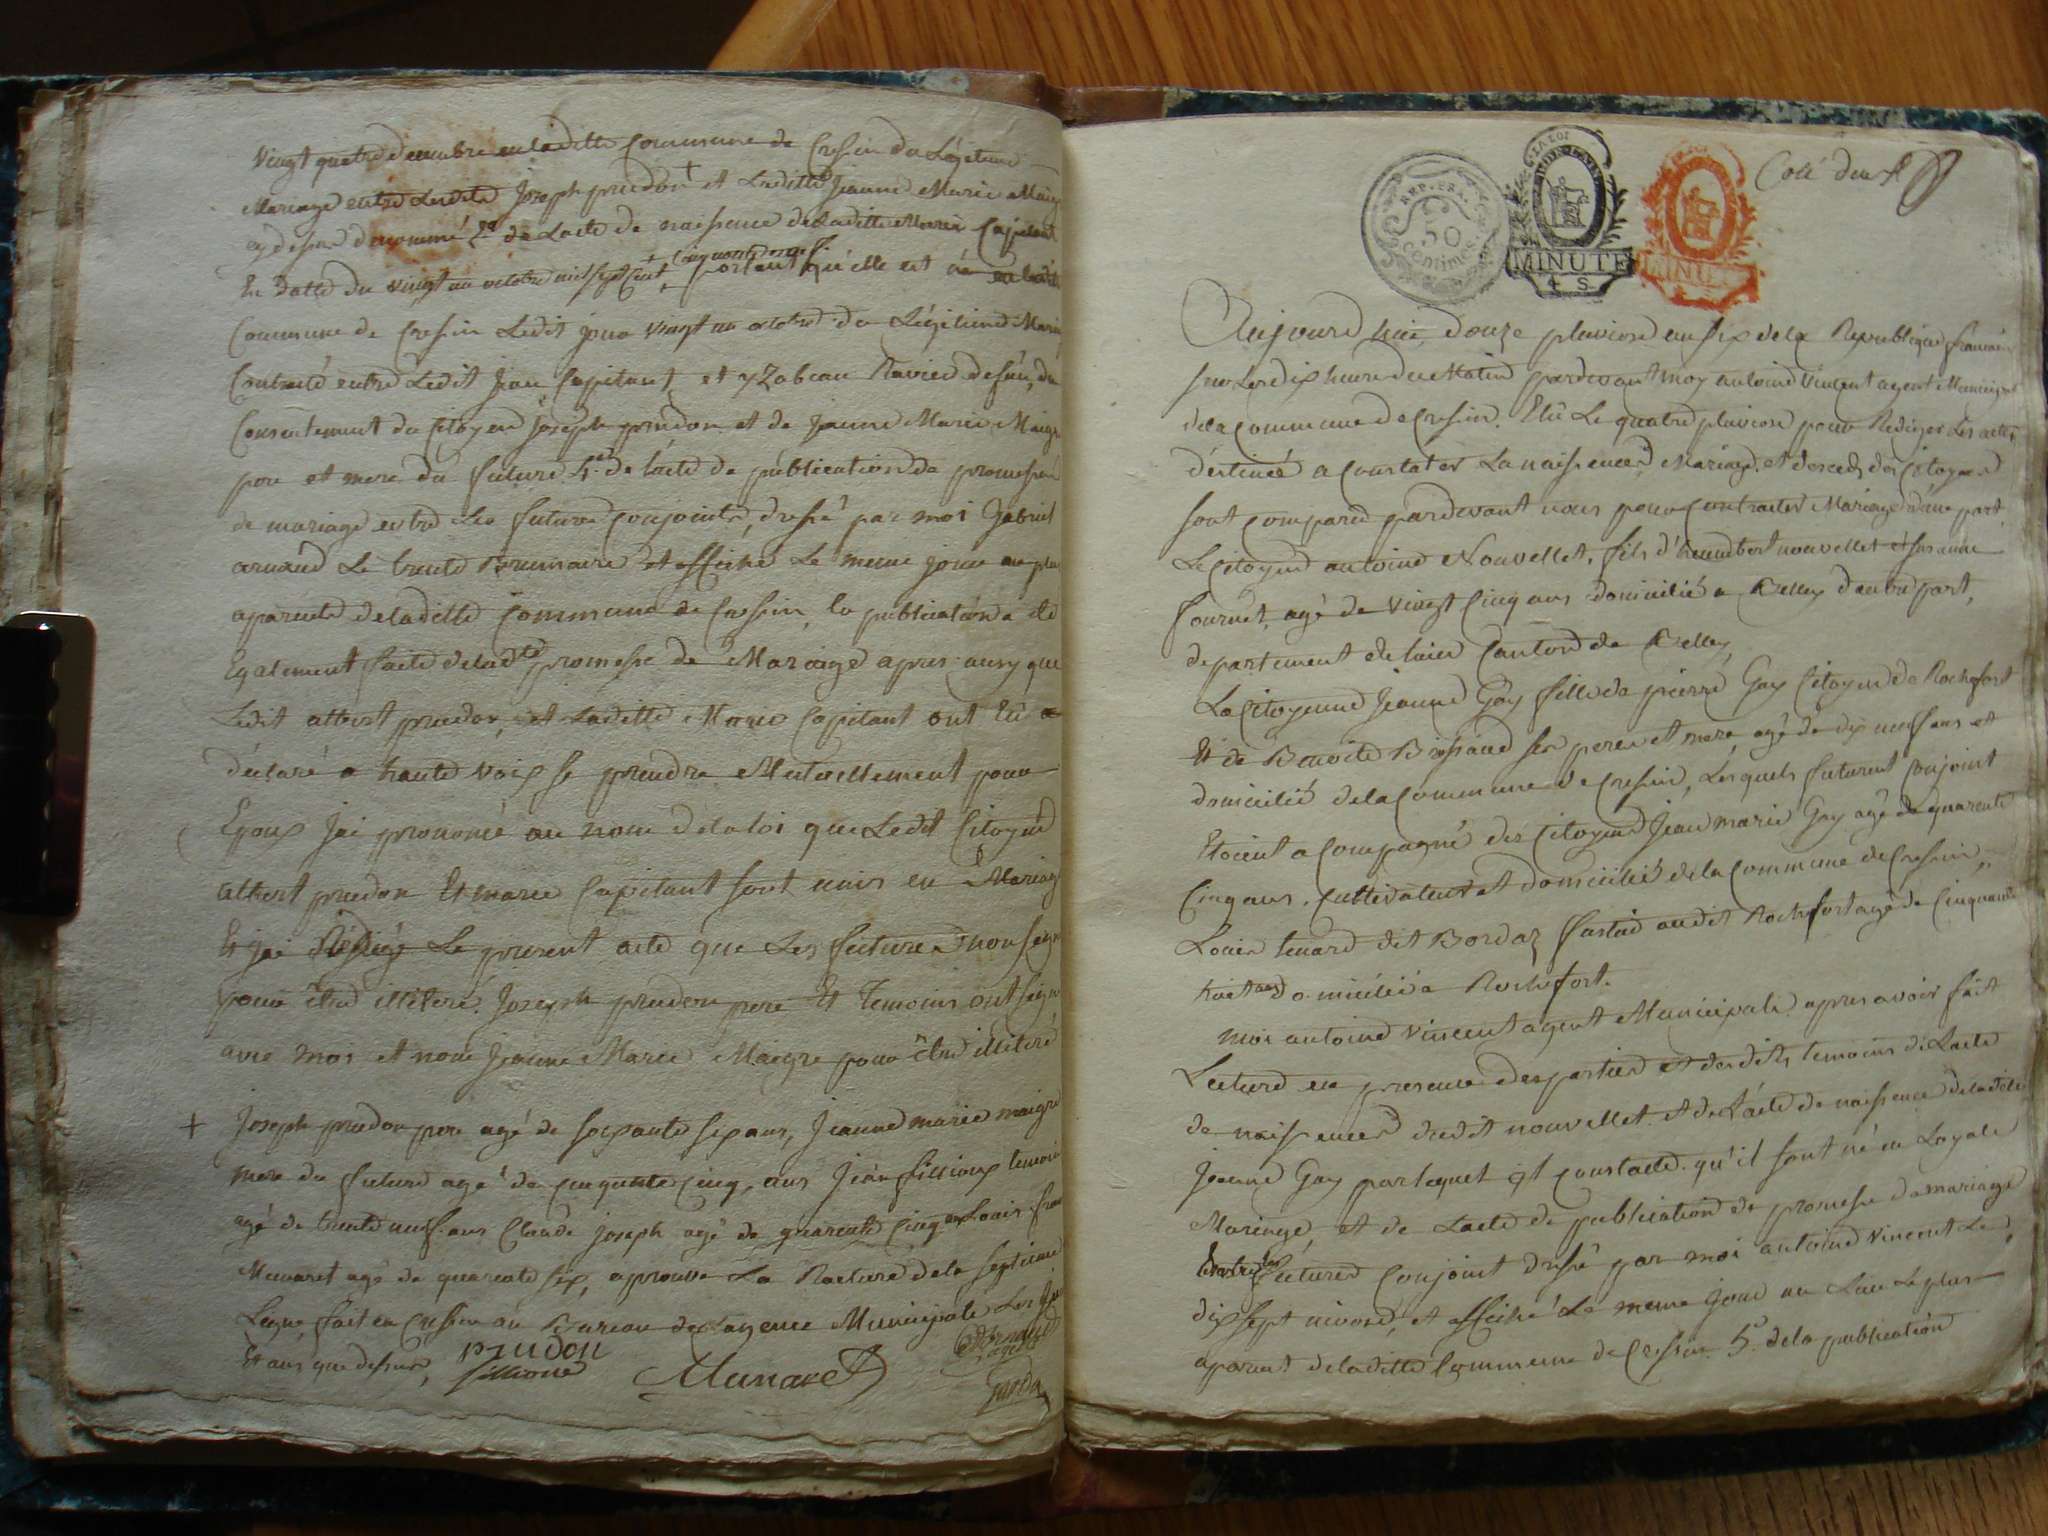 vingt quatre decembre en laditte commune de Cressin du Légitime
Mariage entre Ledit Joseph prudon + et Laditte Jeanne Marie Maigr
cy dessus denommé 2e de Lacte de naissence de Laditte Marie Capitant
En Datte du vingt un octobre mil sept cent + cinquante neuf. portant qu'elle est née en ladite
Commune de Cressin Ledit jour vingt un octobre du Légitime Maria
Contracté entre Ledit Jean Capitant et yzabeau Ravier defun, du
Consentement du Citoyen Joseph prudon et de Jeanne Marie Maigre
pere et mere du future 4e. de lacte de publication de promesse
de mariage entre Les futures conjoints, dressé par moi Gabriel
arnaud Le trente Brumaire et affiché Le meme jour au plus
aparente de laditte Commune de Cressin, la publication a été
Egalement faite de ladte promesse de Mariage apres aussy que
Ledit albert prudon, et Laditte Marie Capitant ont Eté a
déclaré a haute voix se prendre Mutuellement pour
Epoux Jai prononcé au nom de la loi que Ledit Citoyen
albert prudon Et marie Capitant sont unis en Mariag
Et jai Rédigé Le present acte que Les futures non signe
pour être illiteré. Joseph prudon pere Et Temoins ont signe
avec moi et non Jeanne Marie Maigre pour être illiteré
+ Joseph prudon pere agé de soixante six ans, Jeanne marie maigre
mere du future agé de cinquante cinq, ans Jean fillioux temoin
agé de trente neuf ans Claude joseph agé de quarente cinq ans Louis fran
Munaret agé de quarente six, aprouve La Rature de la septieme
Ligne, fait en Cressin au Bureau de Lagence Municipale Les Jour
Et ans que dessus, prudon
fillioux Munaret
agent
Cotté deux
REP. FRA.
50
Centimes
MINUTE
4 S
MINUTE
Aujourd huit douze pluviose an six de la Republique francaise
sur Les dix heure du Matin pardevant moy antoine vincent agent Municipal
de la commune de Cressin. Elû Le quatre pluviose pour Rediger Les actes
destiné a Constater La naissences, Mariage, et deces des Citoyens
sont comparu pardevant nous pour contracter Mariage d'une part,
Le Citoyen antoine Nouvellet, fils d'heumbert nouvellet et susanne
fournet, agé de vingt cinq ans domicilié a Belley d'autre part,
departement de Lain Canton de Belley,
La Citoyenne Jeanne Gay fille de pierre Gay Citoyen de Rochefort
Et de Benoite Brissaud ses pere et mere, agé de dix neuf ans et
domicilié de la Commune de Cressin, Lesquels futurent Conjoint
Etoient acompagné des Citoyens Jean marie Gay agé de quarente
Cinq ans, Cultivateur et domicilié de la Commune de Cressin,
Louis tenard dit Bordaz fastié audit Rochefort agé de Cinquante
huit ans domicilié a Rochefort.
moi antoine vincent agent Municipale apres avoir fait
Lecture en presence des parties et desdits temoins de Lacte
de naissences dudit nouvellet et de Lacte de naissence de ladite
Jeanne Gay par lequel est constaté qu'il sont né en Loyale
Mariage, et de Lacte de publication de promesse de mariage
Entre Les futures conjoint dressé par moi antoine vincent Le
dix sept nivose, et affiché Le meme jour au Lieu Le plus
aparent de laditte Commune de Cressin 5e de la publication